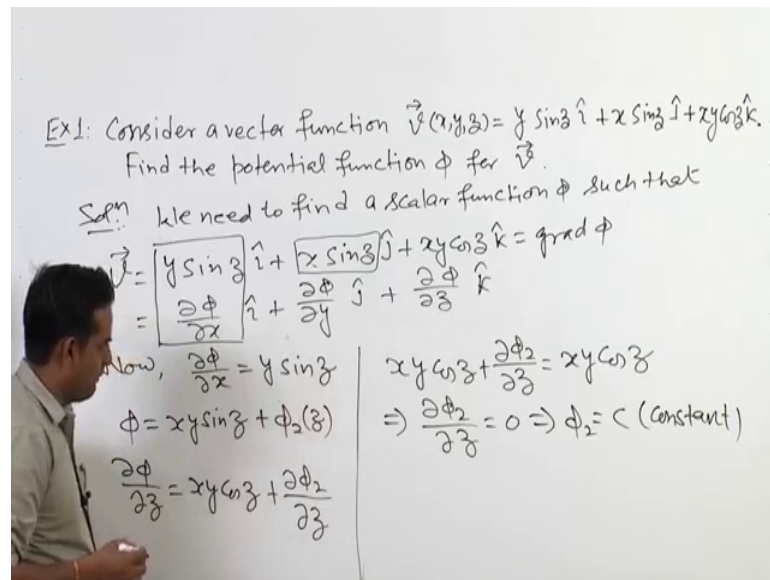 Ex1: Consider a vector function v⃗(x,y,z) = y sinz î + x sinz ĵ + xy cosz k̂.
Find the potential function φ for v⃗.
Solⁿ We need to find a scalar function φ such that
v⃗ = y sinz î + x sinz ĵ + xy cosz k̂ = grad φ
= ∂φ/∂x î + ∂φ/∂y ĵ + ∂φ/∂z k̂
Now, ∂φ/∂x = y sinz
φ = xy sinz + φ₂(z)
∂φ/∂z = xy cosz + ∂φ₂/∂z
xy cosz + ∂φ₂/∂z = xy cosz
⇒ ∂φ₂/∂z = 0 ⇒ φ₂ = C (Constant)